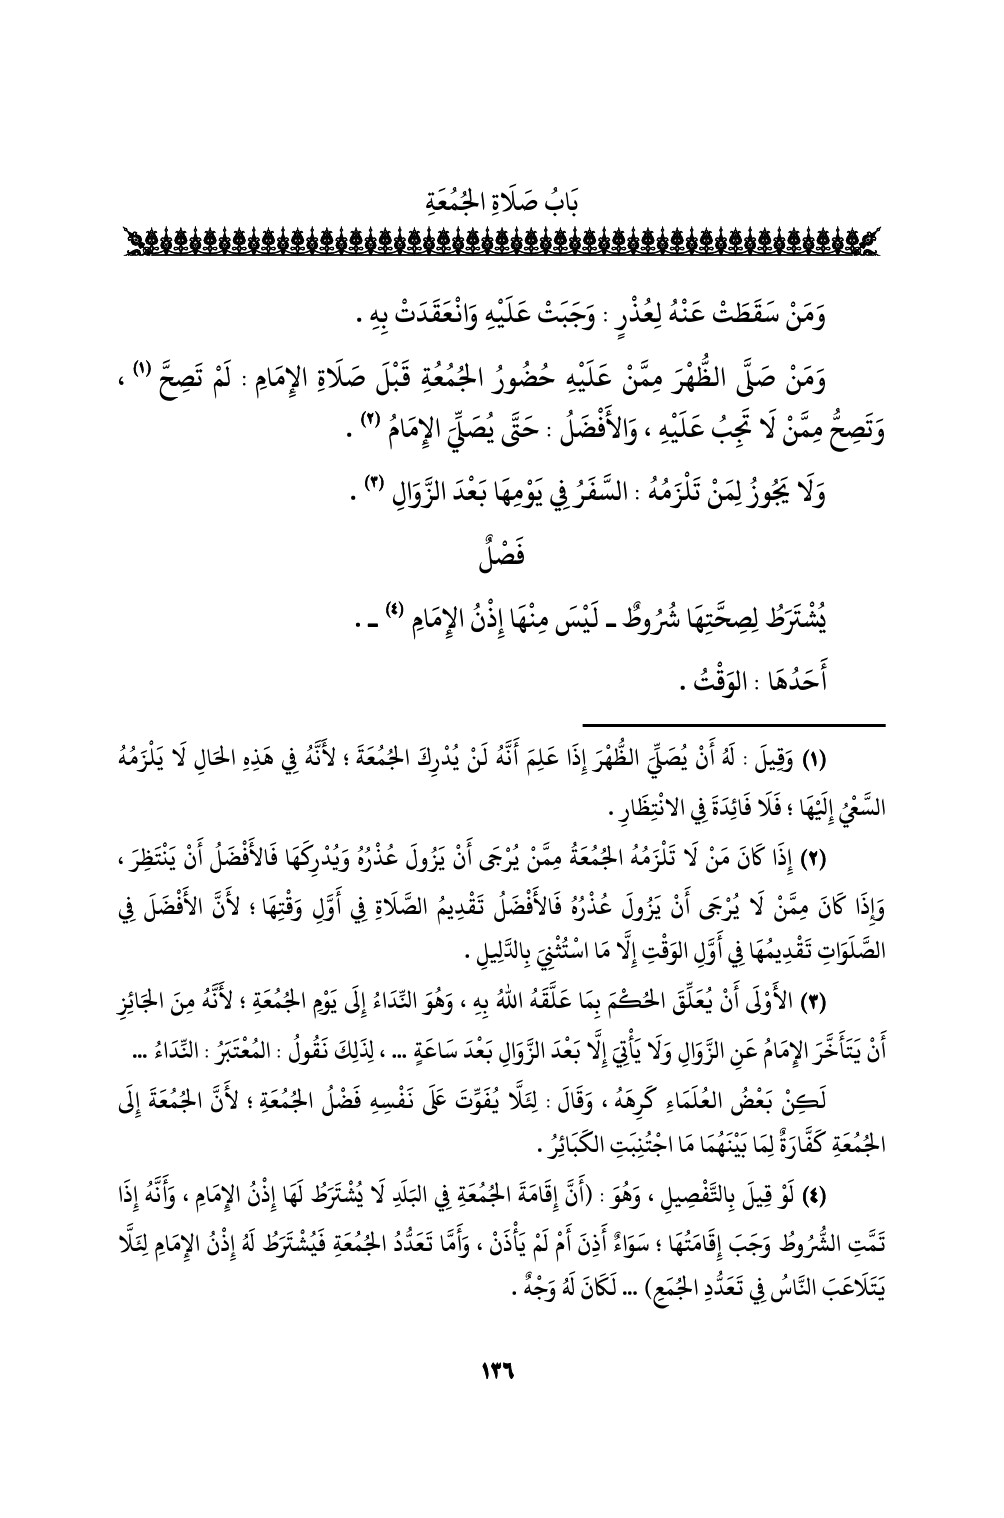 بَابُ صَلَاةِ الجُمُعَةِ
وَمَنْ سَقَطَتْ عَنْهُ لِعُذْرٍ : وَجَبَتْ عَلَيْهِ وَانْعَقَدَتْ بِهِ .
وَمَنْ صَلَّى الظُّهْرَ مِمَّنْ عَلَيْهِ حُضُورُ الجُمُعُةِ قَبْلَ صَلَاةِ الإِمَامِ : لَمْ تَصِحَّ (١) ،
وَتَصِحُّ مِمَّنْ لَا تَجِبُ عَلَيْهِ ، وَالأَفْضَلُ : حَتَّى يُصَلِّيَ الإِمَامُ (٢) .
وَلَا يَجُوزُ لِمَنْ تَلْزَمُهُ : السَّفَرُ فِي يَوْمِهَا بَعْدَ الزَّوَالِ (٣) .
فَصْلٌ
يُشْتَرَطُ لِصِحَّتِهَا شُرُوطٌ ـ لَيْسَ مِنْهَا إِذْنُ الإِمَامِ (٤) ـ .
أَحَدُهَا : الوَقْتُ .
(١) وَقِيلَ : لَهُ أَنْ يُصَلِّيَ الظُّهْرَ إِذَا عَلِمَ أَنَّهُ لَنْ يُدْرِكَ الجُمُعَةَ ؛ لأَنَّهُ فِي هَذِهِ الحَالِ لَا يَلْزَمُهُ
السَّعْيُ إِلَيْهَا ؛ فَلَا فَائِدَةَ فِي الانْتِظَارِ .
(٢) إِذَا كَانَ مَنْ لَا تَلْزَمُهُ الجُمُعَةُ مِمَّنْ يُرْجَى أَنْ يَزُولَ عُذْرُهُ وَيُدْرِكَهَا فَالأَفْضَلُ أَنْ يَنْتَظِرَ ،
وَإِذَا كَانَ مِمَّنْ لَا يُرْجَى أَنْ يَزُولَ عُذْرُهُ فَالأَفْضَلُ تَقْدِيمُ الصَّلَاةِ فِي أَوَّلِ وَقْتِهَا ؛ لأَنَّ الأَفْضَلَ فِي
الصَّلَوَاتِ تَقْدِيمُهَا فِي أَوَّلِ الوَقْتِ إِلَّا مَا اسْتُثْنِيَ بِالدَّلِيلِ .
(٣) الأَوْلَى أَنْ يُعَلَّقَ الحُكْمَ بِمَا عَلَّقَهُ اللهُ بِهِ ، وَهُوَ النِّدَاءُ إِلَى يَوْمِ الجُمُعَةِ ؛ لأَنَّهُ مِنَ الجَائِزِ
أَنْ يَتَأَخَّرَ الإِمَامُ عَنِ الزَّوَالِ وَلَا يَأْتِيَ إِلَّا بَعْدَ الزَّوَالِ بَعْدَ سَاعَةٍ ... ، لِذَلِكَ نَقُولُ : المُعْتَبَرُ : النِّدَاءُ ...
لَكِنْ بَعْضُ العُلَمَاءِ كَرِهَهُ ، وَقَالَ : لِئَلَّا يُفَوِّتَ عَلَى نَفْسِهِ فَضْلُ الجُمُعَةِ ؛ لأَنَّ الجُمُعَةَ إِلَى
الجُمُعَةِ كَفَّارَةٌ لِمَا بَيْنَهُمَا مَا اجْتُنِبَتِ الكَبَائِرُ .
(٤) لَوْ قِيلَ بِالتَّفْصِيلِ ، وَهُوَ : (أَنَّ إِقَامَةَ الجُمُعَةِ فِي البَلَدِ لَا يُشْتَرَطُ لَهَا إِذْنُ الإِمَامِ ، وَأَنَّهُ إِذَا
تَمَّتِ الشُّرُوطُ وَجَبَ إِقَامَتُهَا ؛ سَوَاءٌ أَذِنَ أَمْ لَمْ يَأْذَنْ ، وَأَمَّا تَعَدُّدُ الجُمُعَةِ فَيُشْتَرَطُ لَهُ إِذْنُ الإِمَامِ لِئَلَّا
يَتَلَاعَبَ النَّاسُ فِي تَعَدُّدِ الجُمَعِ) ... لَكَانَ لَهُ وَجْهٌ .
١٣٦